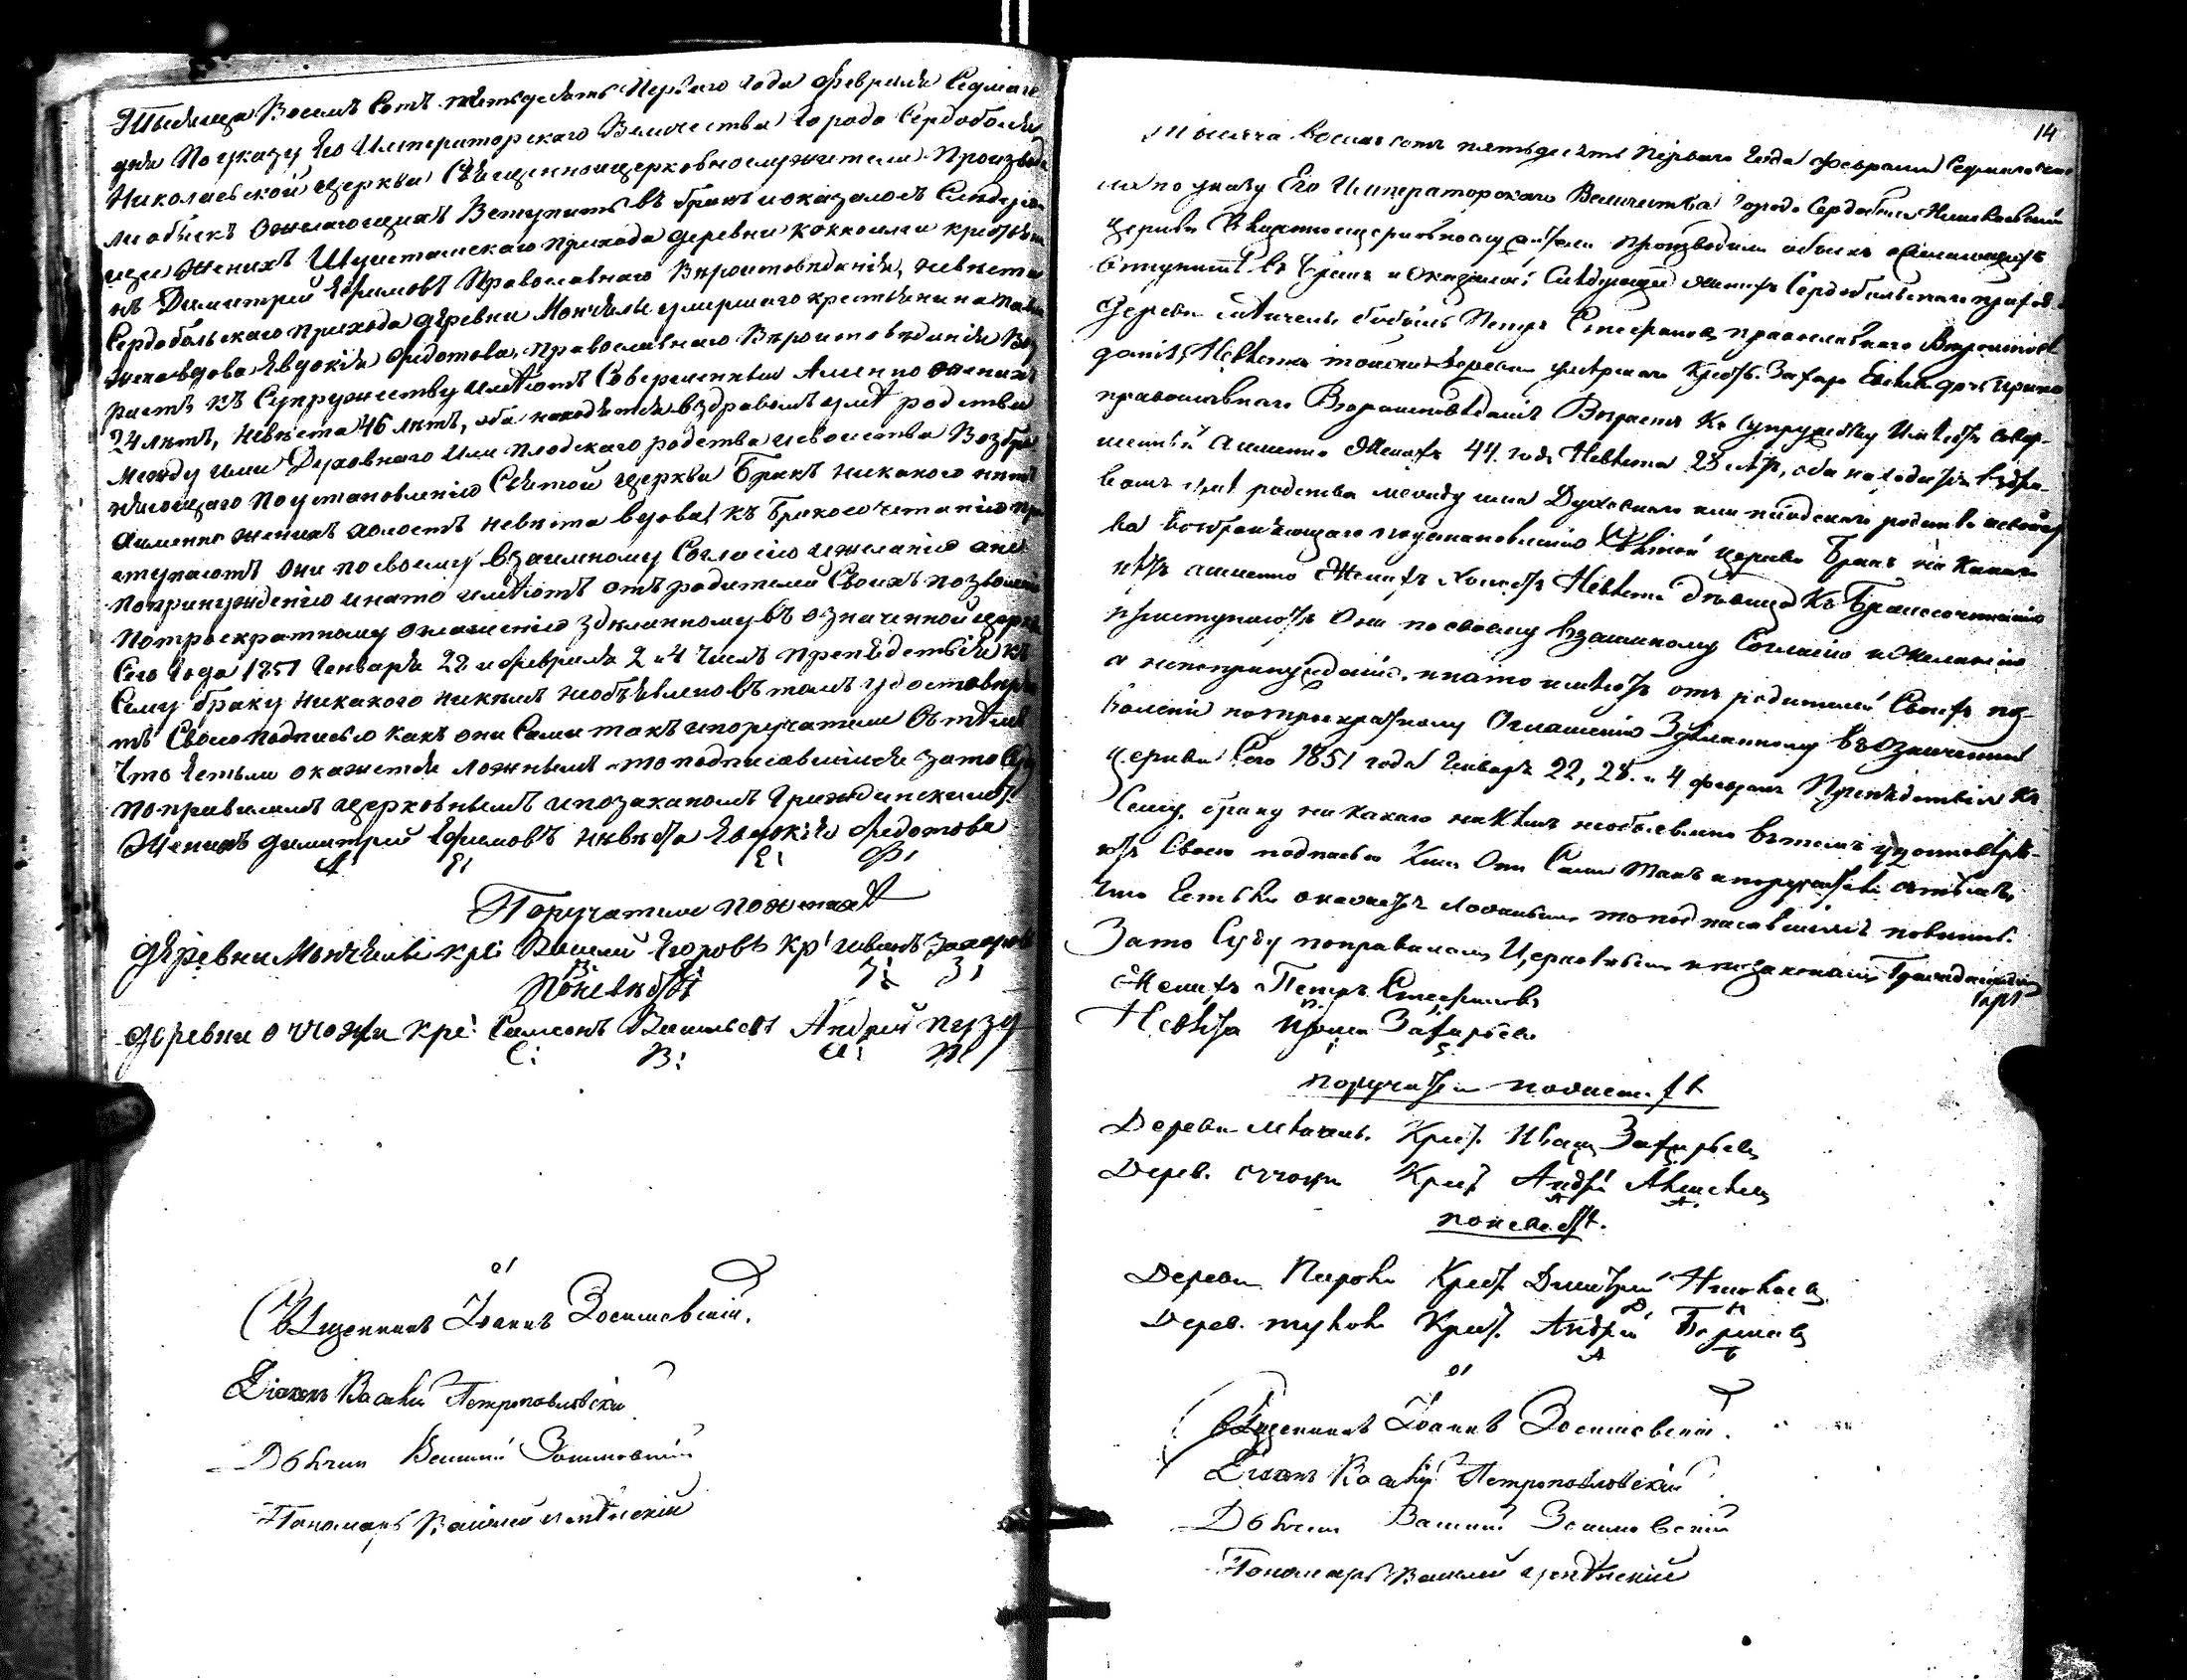 Тысяща Восемь Сотъ пятьдесятъ Перваго года февраля Седмаго
дня По указу Его Императорскаго Величества Города Сердоболя
Николаевской церкви Священноцерковнослужители Производи
ли обыскъ о желающихъ Вступить въ бракъ и оказалось Следую
щее Женихъ Шуистамскаго прихода деревни Коккоила крестьяни
нъ Димитрий Ефимовъ Православнаго Вероисповеданія, невеста
Сердобольскаго прихода деревни умершаго крестьянина
жена вдова Евдокія Федотова, православнаго Вероисповеданія Воз
растъ къ Супружеству имѣютъ Совершенный Аименно женихъ
24 лѣтъ, невѣста 46 лѣтъ, оба находятся въ здравомъ умѣ родства
между ими Духовнаго или плодскаго родства и свойства Возбра
няющаго по установленію Святой церкви Бракъ никакого нѣтъ
Аименно женихъ холостъ невѣста вдова къ Бракосочетанію при
ступаютъ они по своему взаимному Согласію и желанію а не
по принужденію и на то имѣютъ отъ родителей Своихъ позволеніе
По троекратному оглашенію зделанному въ означенной церкви
Сего года 1851 Генваря 28 и февраля 2 и 4 Чиселъ препядствія къ
Сему браку никакого никѣмъ необъявлено въ томъ удостоверяю
тъ Своею подписью какъ они Сами такъ и поручатели Съ тѣмъ
Что Естьли окажется ложнымъ то подписавшіися за то Суду
по правиламъ церковнымъ и по законамъ Гражданскимъ.
Женихъ Димитрий Ефимовъ невѣста Евдокія Федотова
Д: Е: Е: Ф:
Поручатели по женихѣ
деревни кре: Василий Егоровъ кр: Иванъ Захаровъ
В: Е: І: З:
По невѣстѣ
деревни кре: Симеонъ Васильевъ Андрей
С: В: А:
Священникъ Іоаннъ Зосимовский.
Діаконъ Василий Петропавловский
Дьячик Василий Зосимовский
Пономарь Василий
14
Тысяча восемь сотъ пятьдесятъ перваго Года февраля Седмаго дня
по указу Его Императорскаго Величества Города Сердоболя Николаевской
церкви Священноцерковнослужители производили обыскъ о желающихъ
вступить въ бракъ и Оказалось Слѣдующее женихъ Сердобольскаго прихода
деревни бобыль Петръ Стефановъ православнаго Вероисповѣ
данія, Невѣста тойже деревни умершаго Крест. Захара дочь
православнаго Вероисповѣданія Возрастъ Къ Супружеству Имѣютъ совер-
шенный Аименно Женихъ 44 года Невѣста 28 лѣтъ, оба находятся въ здра-
вомъ умѣ родства между ими Духовнаго или плодскаго родства и свойст
ва Возбраняющаго по установленію Святой церкви Бракъ никакого
нѣтъ аименно Женихъ холостъ Невѣста дѣвица Къ Бракосочетанію
приступаютъ Они по своему взаимному Согласію и Желанію
а не по принужденію, и на то имѣютъ отъ родителей Своихъ поз-
воленіе по троекратному Оглашенію Зделанному въ Означенной
церкви Сего 1851 года Генваря 22, 28. и 4 февраля Препядствія къ
Сему браку никакого никѣмъ необъявлено въ томъ удостовѣря-
ютъ Своею подписью Какъ Они Сами Такъ и поручатели съ тѣмъ,
что Естьли окажется ложнымъ то подписавшіися повинны
За то Суду по правиламъ Церковнымъ и по законамъ Гражданскимъ
Женихъ Петръ Стефановъ
Невѣста Захарьева
поручатели по женихѣ
Деревни Крест. Иванъ Захарьевъ
Дерев. Крест. Андрей
А А.
по невѣстѣ.
Деревни Крест. Дмитрий Николаевъ
Д, Н
Дерев. Крест. Андрей
А
Священникъ Іоаннъ Зосимовский.
Діаконъ Василий Петропавловский
Дьячик Василий Зосимовский
Пономарь Василий